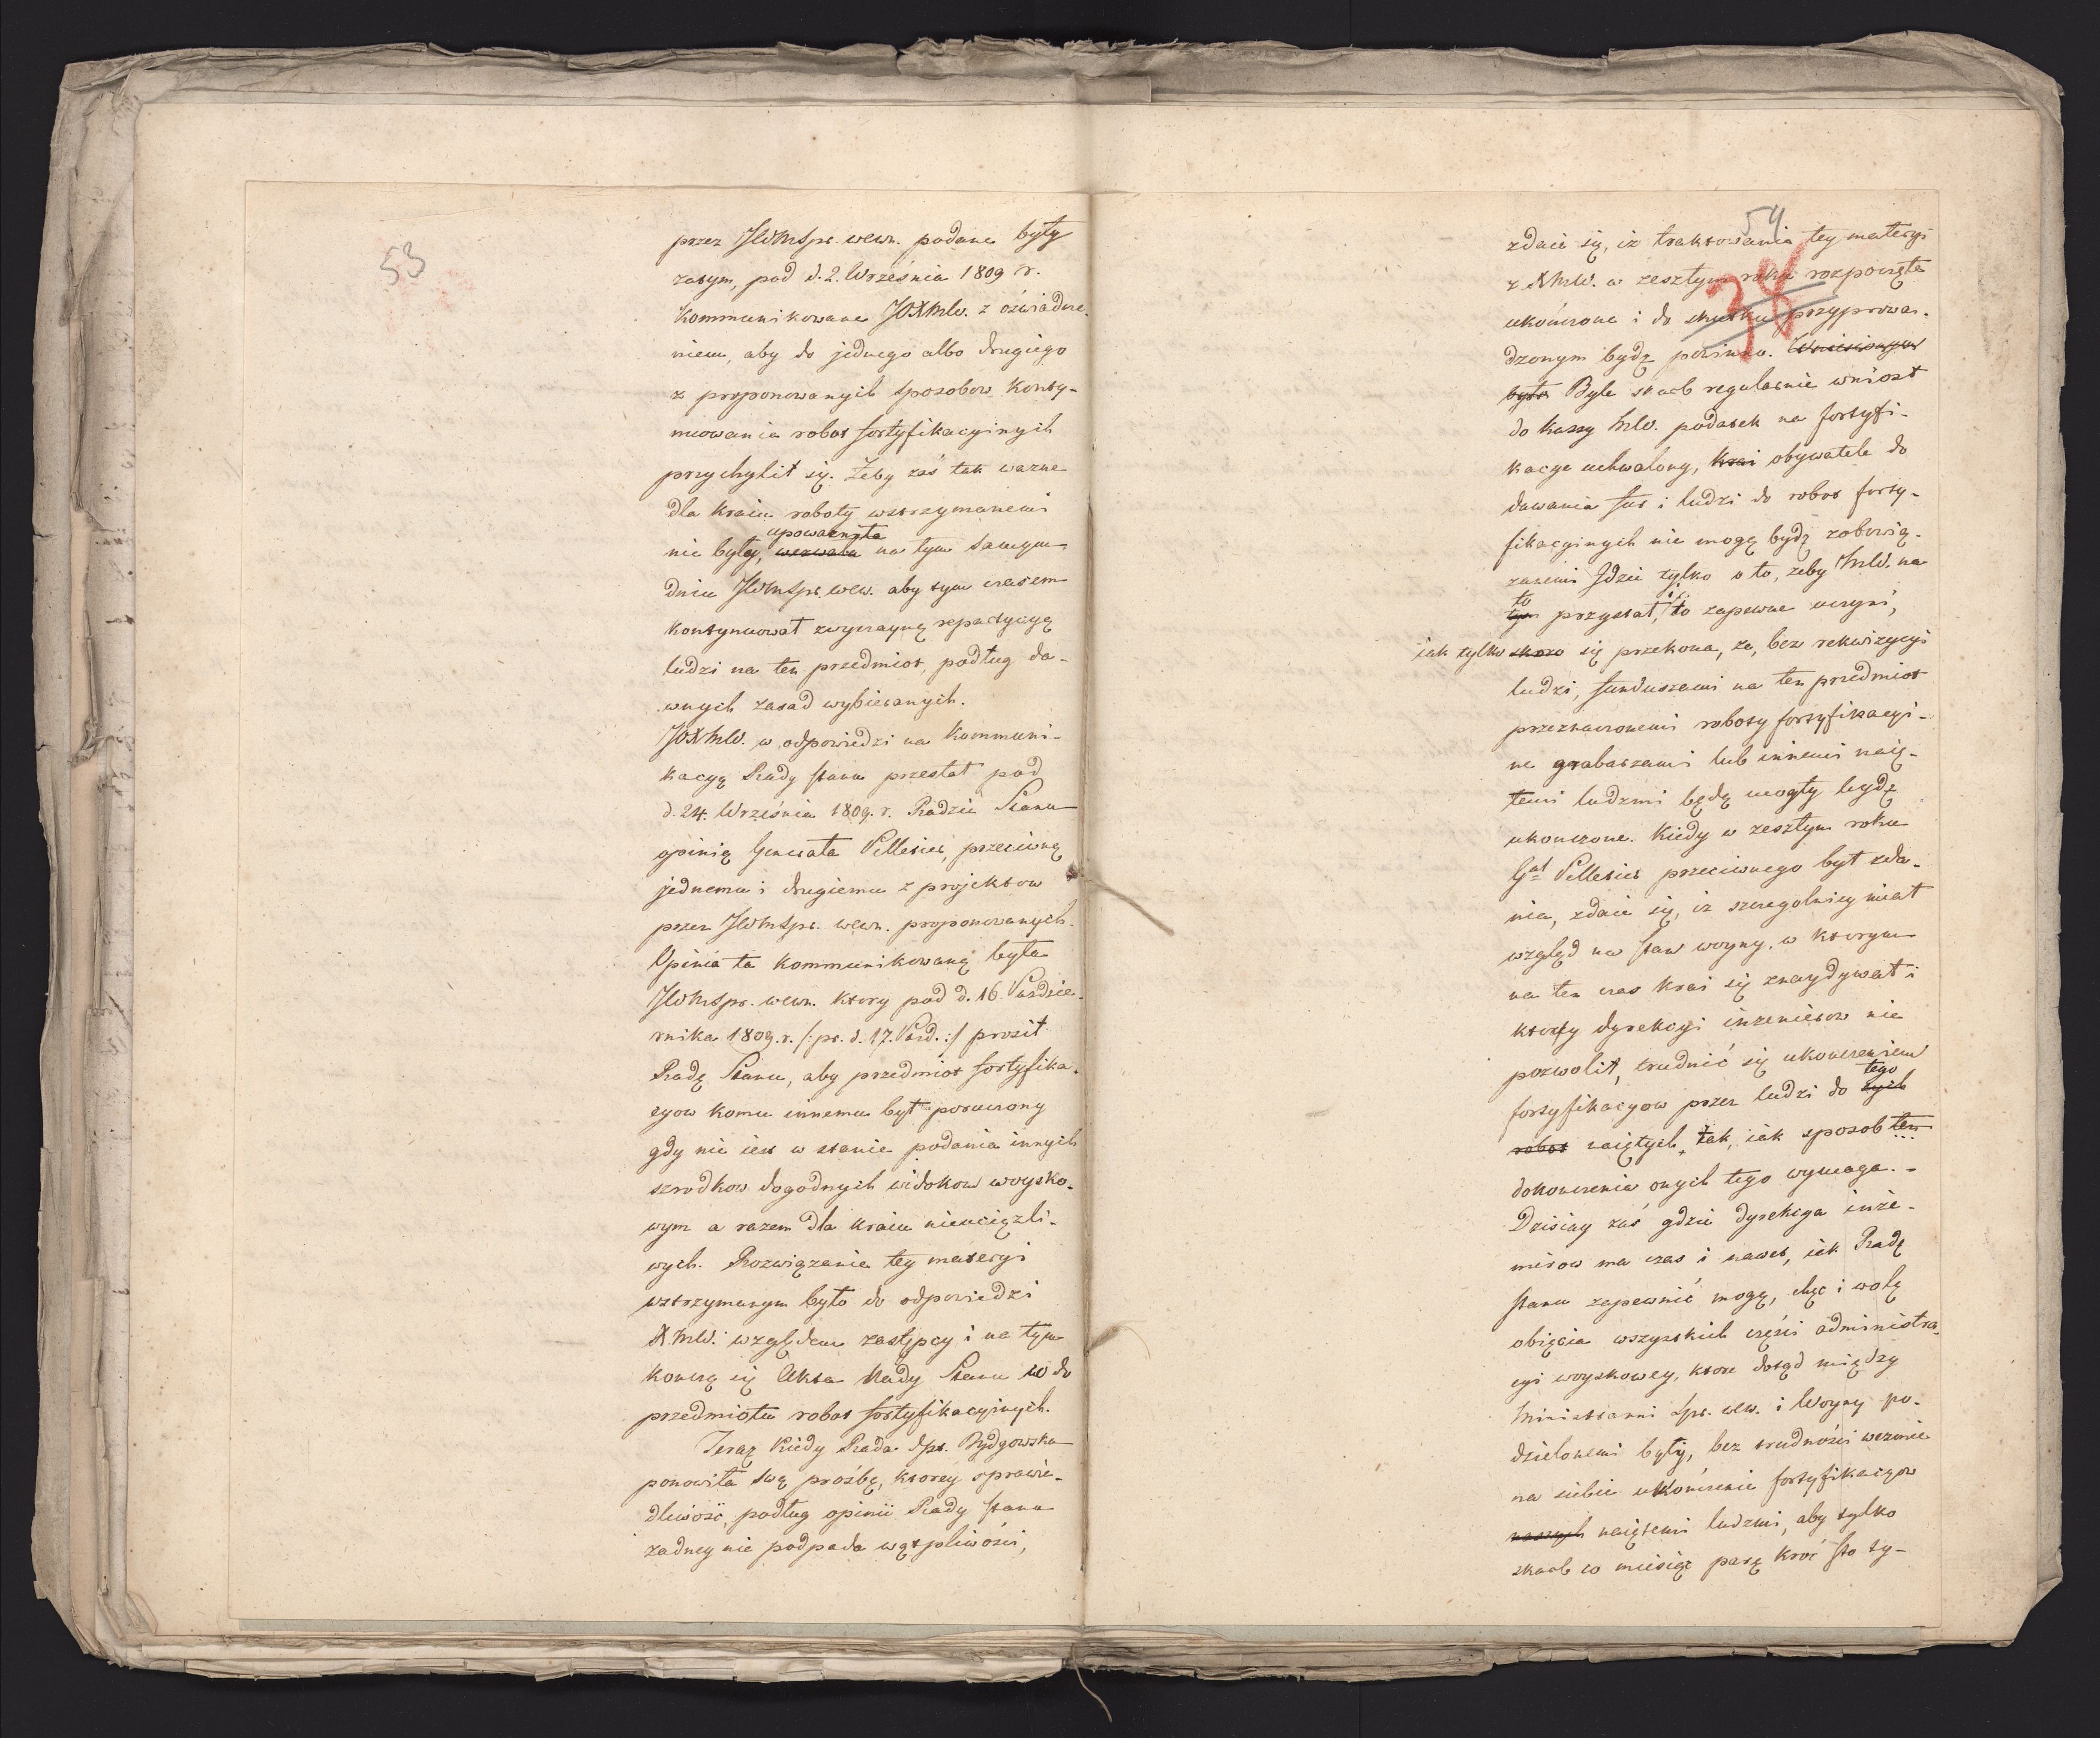 53
przez JWMSpr. wewn. podane były
zatym, pod d. 2. Września 1809 r.
kommunikowane JOXMW. z oświadcze-
niem, aby do jednego albo drugiego
z proponowanych sposobow konty-
nuowania robot fortyfikacyinych
przychylił się. Żeby zaś tak wazne
dla kraiu roboty wstrzymanemi
upowazniła
nie były, wezwała na tym samym
dniu JWMSpr. wew. aby tym czasem
kontynuował zwyczayną repartycyą
ludzi na ten przedmiot, podług da-
wnych zasad wybieranych.
JOXMW. w odpowiedzi na kommuni-
kacyą Rady Stanu przesłał pod
d. 24. Września 1809. r. Radzie Stanu
opinią Generała Pelletier, przeciwną
jednemu i drugiemu z projektow
przez JWMSpr. wewn. proponowanych.
Opinia ta kommunikowaną była
JWMSpr. wewn. ktory pod d. 16. Paździe-
rnika 1809. r. /: pr. d. 17. Paźd. :/ prosił
Radę Stanu, aby przedmiot fortyfika-
cyow komu innemu był poruczony
gdy nie iest w stanie podania innych
szrodkow dogodnych widokow woysko-
wym a razem dla kraiu nieuciązli-
wych. Rozwiązanie tey materyi
wstrzymanym było do odpowiedzi
X. MW. względem zastępcy i na tym
konczą się Akta Rady Stanu co do
przedmiotu robot fortyfikacyinych.
Teraz kiedy Rada Dpt. Bydgowska
ponowiła swą prośbę, ktorey sprawie-
dliwość, podług opinii Rady Stanu
zadney nie podpada wątpliwości,
54
38
zdaie się, iz traktowania tey materyi
z XMW. w zeszłym roku rozpoczęte
ukończone i do skutku przyprowa-
dzonym bydź powinno. Wniesionym
było Byle skarb regularnie wniosł
do kassy MW. podatek na fortyfi-
kacye uchwalony, krai obywatele do
dawania fur i ludzi do robot forty-
fikacyinych nie mogą bydź zobowią-
zanemi Idzie tylko o to, zeby MW. na
to
tym przystał, to zapewne uczyni,
iak tylko skoro się przekona, ze, bez rekwizycyi
ludzi, funduszami na ten przedmiot
przeznaczonemi roboty fortyfikacyi-
ne grabarzami lub innemi naię-
temi ludzmi będą mogły bydź
ukonczone. Kiedy w zeszłym roku
Gnł Pelletier przeciwnego był zda-
nia, zdaie się, iz szczegolniey miał
wzgląd na stan woyny, w ktorym
na ten czas krai się znaydywał i
ktory dyrekcyi inzenierow nie
pozwolił, trudnić się ukonczeniem
tego
fortyfikacyow przez ludzi do tych
robot naiętych, tak, iak sposob ten
dokonczenia onych tego wymaga. -
Dzisiay zaś gdzie dyrekcya inże-
nierow ma czas i nawet, iak Radę
Stanu zapewnić mogę, chęć i wolę
obięcia wszystkich części administra-
cyi woyskowey, ktore dotąd między
Ministrami Spr. wew. i Woyny po-
dzielonemi były, bez trudności wezmie
na siebie ukończenie fortyfikacyow
naszych naiętemi ludzmi, aby tylko
skarb co miesiąc parę kroć sto ty-